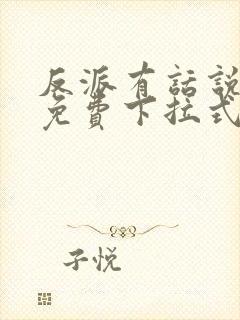 反派有話說
免費下拉式
子悦